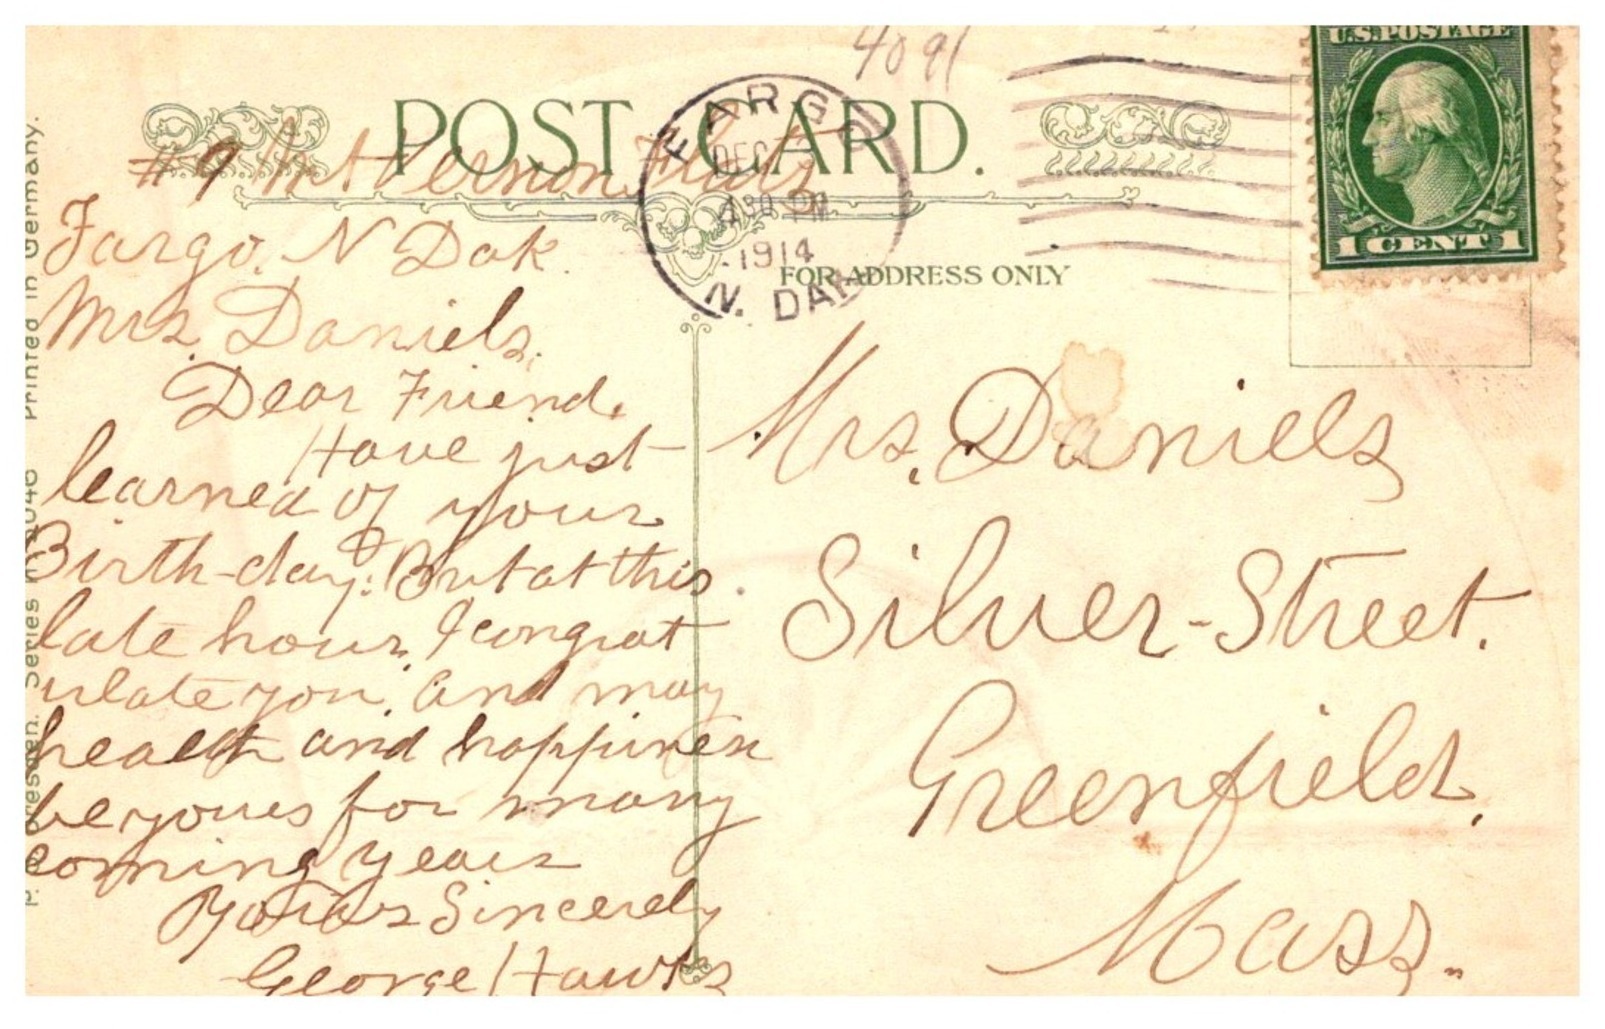 4091
U.S. POSTAGE
1 CENT 1
POST CARD.
FARGO
DEC
430 PM
1914
N. DAK
FOR ADDRESS ONLY
#9 Mt Vernon Flats
Fargo. N Dak.
Mrs Daniels.
Dear Friend.
Have just
learned of your
Birth-day. But at this
late hour, I congrat
ulate you, and may
health and happiness
be yours for many
coming years
Yours Sincerely
George Hawks
Mrs. Daniels
Silver-Street.
Greenfield.
Mass.
Printed in Germany.